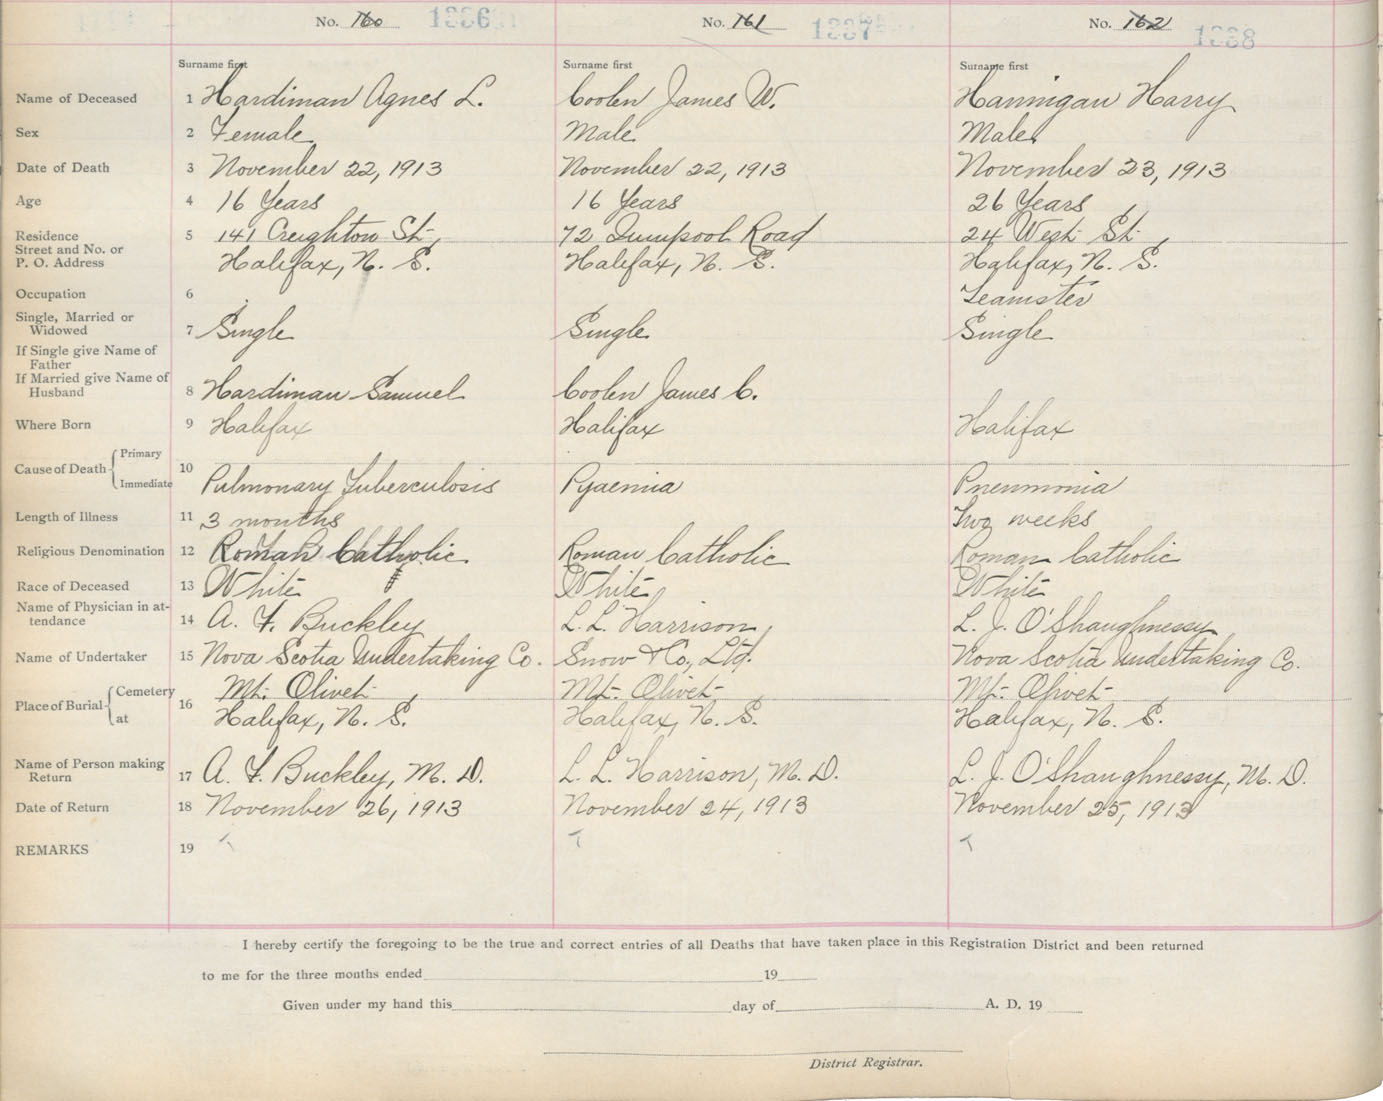 No. 160 1336 No. 161 1337 No. 162 1338
Surname first Surname first Surname first
Name of Deceased 1 Hardiman Agnes L. Coolen James W. Hannigan Harry
Sex 2 Female Male Male
Date of Death 3 November 22, 1913 November 22, 1913 November 23, 1913
Age 4 16 Years 16 Years 26 Years
Residence 5 141 Creighton St., 72 Quinpool Road 24 West St.,
Street and No. or
P. O. Address Halifax, N. S. Halifax, N. S. Halifax, N. S.
Occupation 6 Teamster
Single, Married or
Widowed 7 Single Single Single
If Single give Name of
Father
If Married give Name of
Husband 8 Hardiman Samuel Coolen James C.
Where Born 9 Halifax Halifax Halifax
Primary
Cause of Death 10
Immediate Pulmonary Tuberculosis Pyaemia Pneumonia
Length of Illness 11 3 months Two weeks
Religious Denomination 12 Roman Catholic Roman Catholic Roman Catholic
Race of Deceased 13 White White White
Name of Physician in at-
tendance 14 A. F. Buckley L. L. Harrison L. J. O'Shaughnessy
Name of Undertaker 15 Nova Scotia Undertaking Co. Snow & Co., Ltd. Nova Scotia Undertaking Co.
Cemetery Mt. Olivet, Mt. Olivet, Mt. Olivet,
Place of Burial 16
at Halifax, N. S. Halifax, N. S. Halifax, N. S.
Name of Person making
Return 17 A. F. Buckley, M. D. L. L. Harrison, M. D. L. J. O'Shaughnessy, M. D.
Date of Return 18 November 26, 1913 November 24, 1913 November 25, 1913
REMARKS 19
I hereby certify the foregoing to be the true and correct entries of all Deaths that have taken place in this Registration District and been returned
to me for the three months ended 19
Given under my hand this day of A. D. 19
District Registrar.